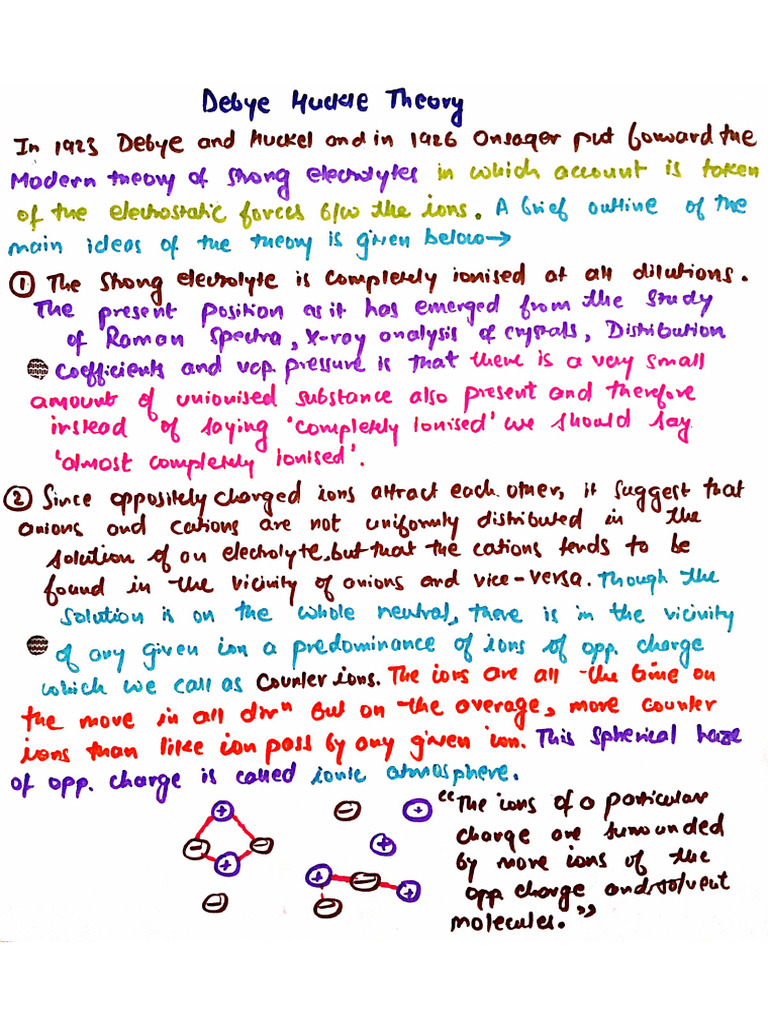 Debye Huckle Theory
In 1923 Debye and Huckel and in 1926 Onsager put forward the
Modern theory of strong electrolytes in which account is taken
of the electrostatic forces b/w the ions. A brief outline of the
main ideas of the theory is given below→
① The strong electrolyte is completely ionised at all dilutions.
The present position as it has emerged from the study
of Raman Spectra, X-ray analysis of crystals, Distribution
coefficients and vap. pressure is that there is a very small
amount of unionised substance also present and therefore
instead of saying 'completely ionised' we should say
'almost completely ionised'.
② Since oppositely charged ions attract each other, it suggest that
anions and cations are not uniformly distributed in the
solution of an electrolyte, but that the cations tends to be
found in the vicinity of anions and vice-versa. Though the
solution is on the whole neutral, there is in the vicinity
of any given ion a predominance of ions of opp. charge
which we call as Counter ions. The ions are all the time on
the move in all dirⁿ but on the average, more counter
ions than like ion pass by any given ion. This spherical haze
of opp. charge is called ionic atmosphere.
"The ions of a particular
charge are surrounded
by more ions of the
opp. charge and solvent
molecules."
+ − +
− − +
+ + − +
− −